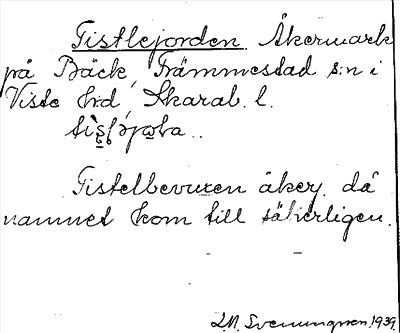 Tistlejorden. Åkermark
på Bäck, Främmestad s:n i
Viste hd, Skarab. l.
Tistelbevuxen åker, då
namnet kom till säkerligen.
1939.